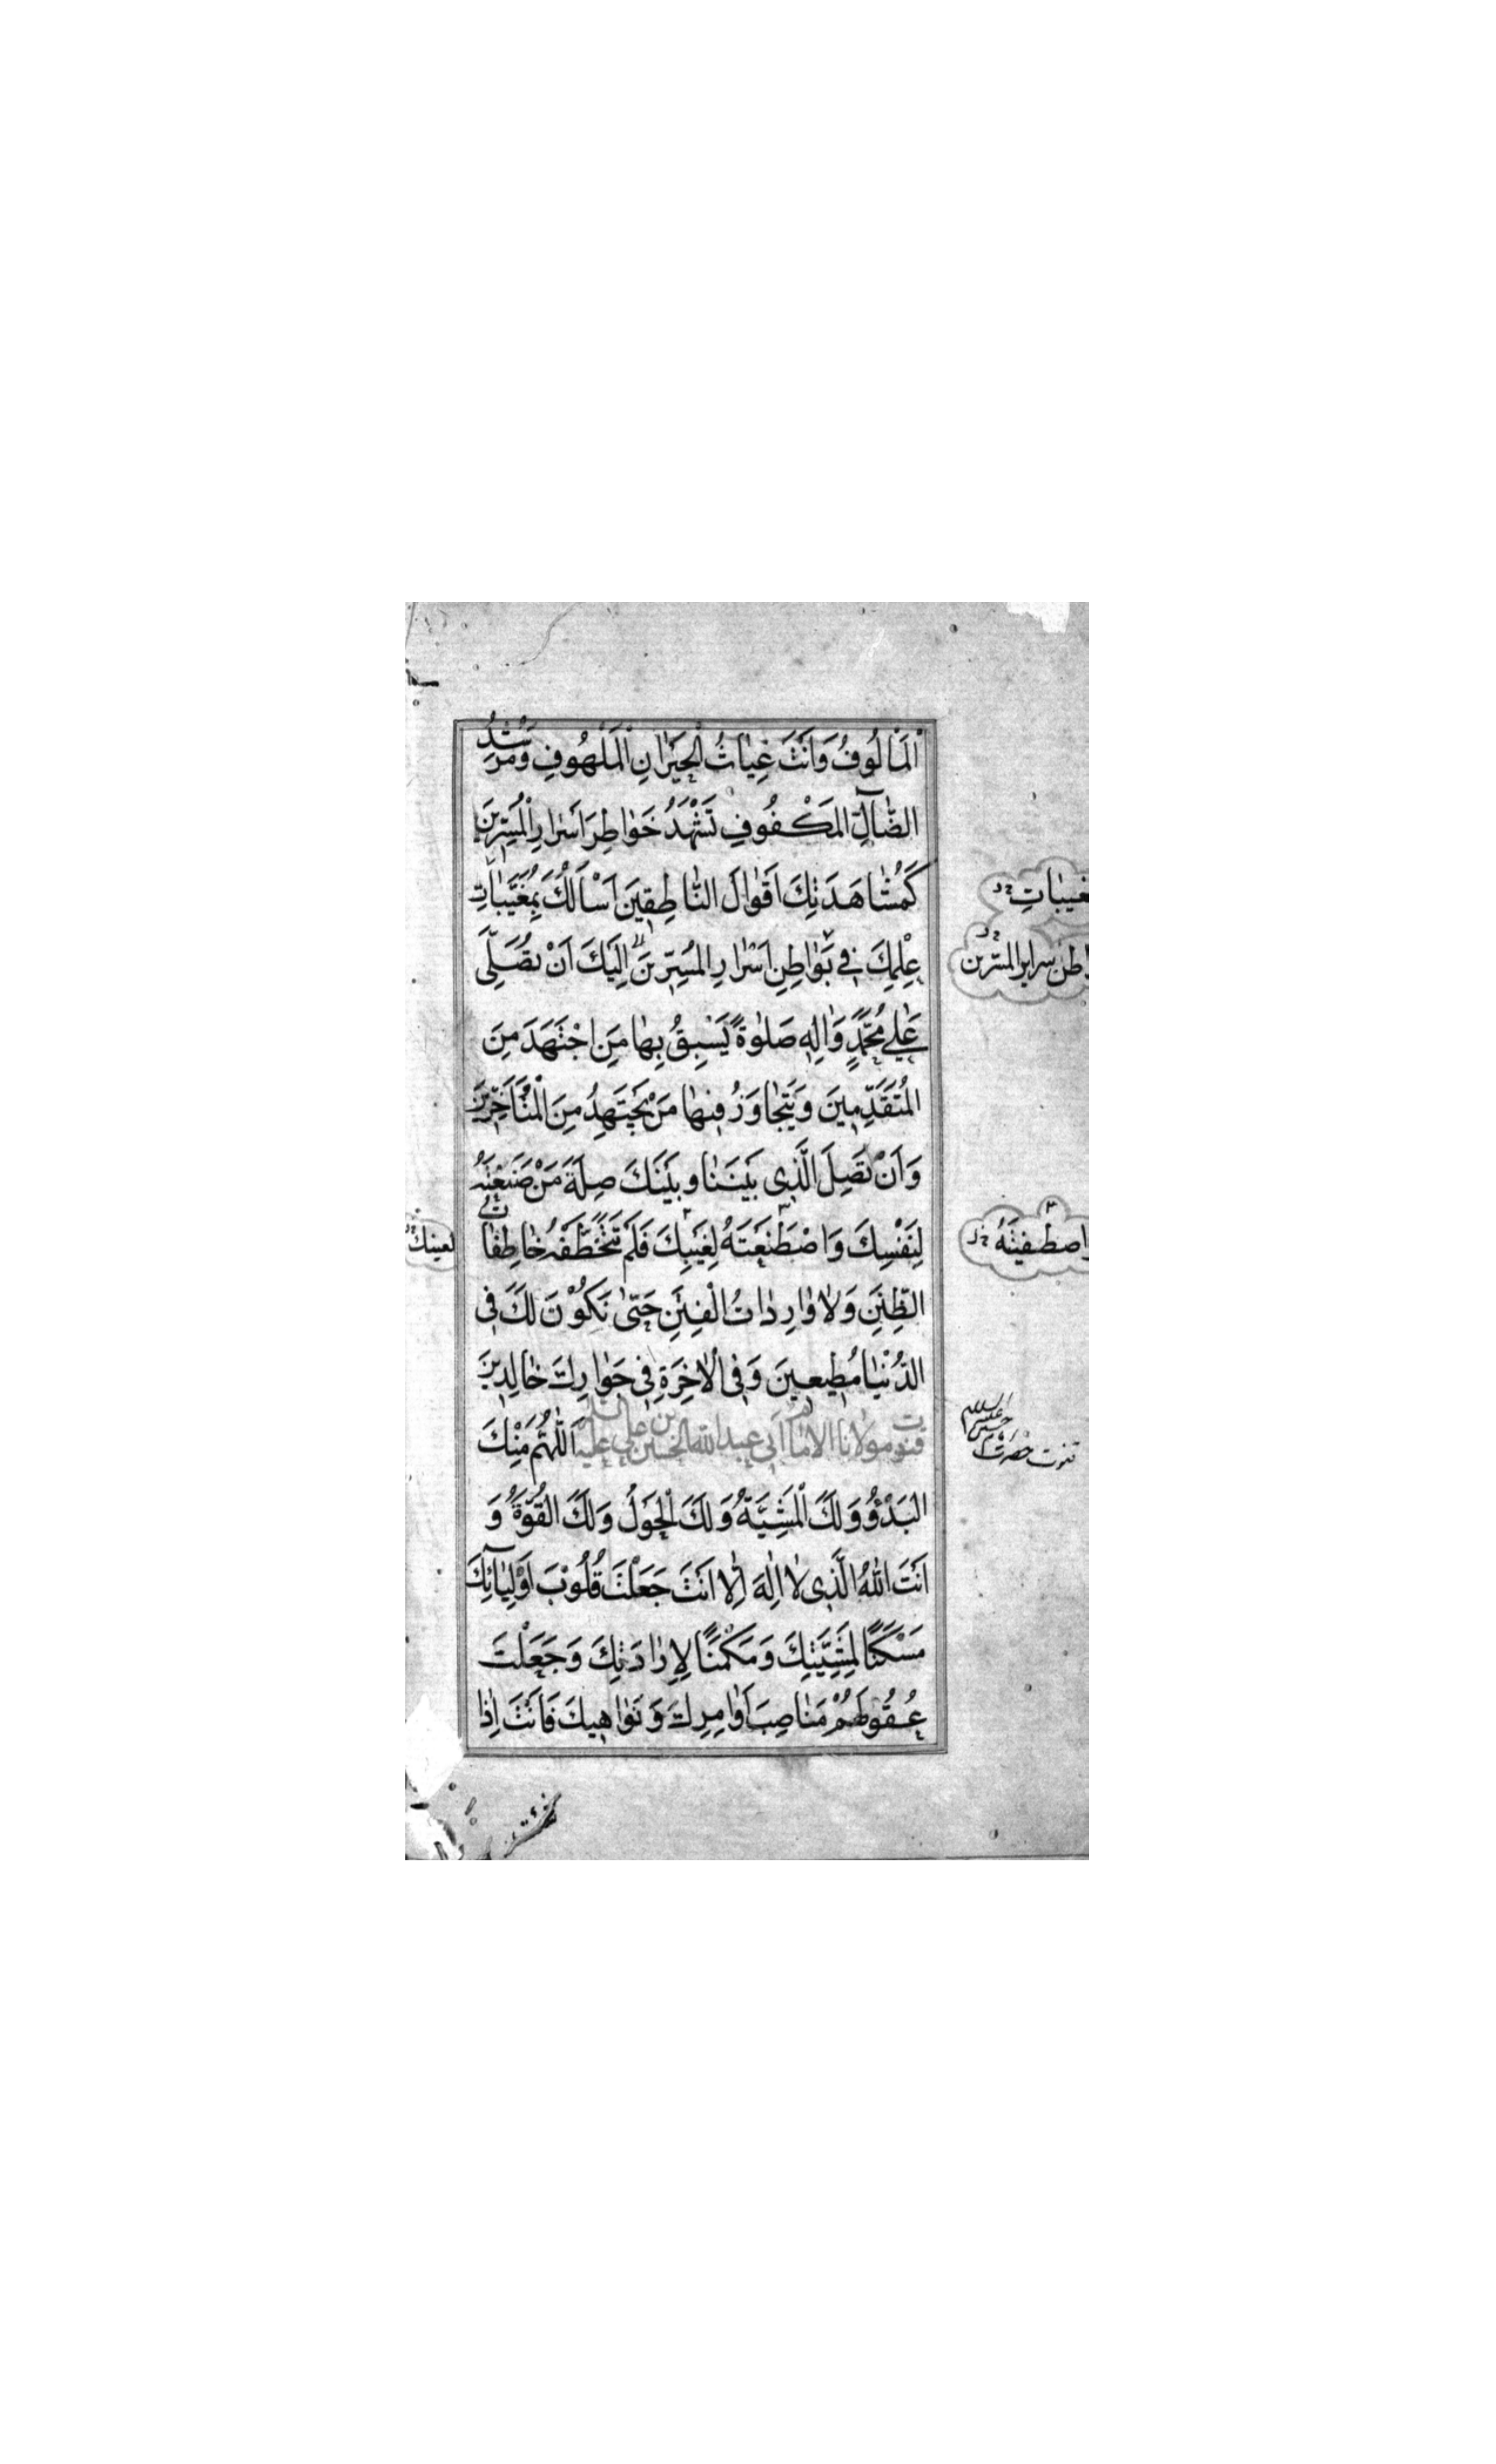 اَلْمَاْلُوفُ وَاَنْتَ غِيٰاثُ الْحَيْرٰانِ الْمَلْهُوفِ وَمُرْشِدُ
الضّٰآلِّ الْمَكْفُوفِ تَشْهَدُ خَوٰاطِرَ اَسْرٰارِ الْمُسِرّينَ
كَمُشٰاهَدَتِكَ اَقْوٰالَ النّٰاطِقِينَ اَسْاَلُكَ بِمُغَيَّبٰاتِ
عِلْمِكَ فِي بَوٰاطِنِ اَسْرٰارِ الْمُسِرّينَ اِلَيْكَ اَنْ تُصَلِّىَ
عَلٰي مُحَمَّدٍ وَاٰلِهِ صَلٰوةً يَسْبِقُ بِهٰا مَنِ اجْتَهَدَ مِنَ
الْمُتَقَدِّمِينَ وَيَتَجٰاوَزُ فِيهٰا مَنْ يَجْتَهِدُ مِنَ الْمُتَاَخِّرِينَ
وَاَنْ تَصِلَ الَّذِى بَيْنَنٰا وَبَيْنَكَ صِلَةَ مَنْ صَنَعْتَهُ
لِنَفْسِكَ وَاصْطَنَعْتَهُ لِغَيْبِكَ فَلَمْ تَتَخَطَّفْهُ خٰاطِفٰاتُ
الظِّنَنِ وَلٰا وٰارِدٰاتُ الْفِتَنِ حَتّٰى نَكُوْنَ لَكَ فِى
الدُّنْيٰا مُطِيعِينَ وَفِى الْاٰخِرَةِ فِى جِوٰارِكَ خٰالِدِينَ
قنوت مولانا الامام ابى عبد الله الحسين بن على عليه السلم اَللّٰهُمَّ مِنْكَ
الْبَدْؤُ وَلَكَ الْمَشِيَّةُ وَلَكَ الْحَوْلُ وَلَكَ الْقُوَّةُ وَ
اَنْتَ اللّٰهُ الَّذِى لٰا اِلٰهَ اِلّٰا اَنْتَ جَعَلْتَ قُلُوْبَ اَوْلِيٰآئِكَ
مَسْكَنًا لِمَشِيَّتِكَ وَمَكْمَنًا لِاِرٰادَتِكَ وَجَعَلْتَ
عُقُولَهُمْ مَنٰاصِبَ اَوٰامِرِكَ وَنَوٰاهِيكَ فَاَنْتَ اِذٰا
مغيبات خ ل
بواطن سراير المسرين خ ل
واصطفيته خ ل
لعينك خ
قنوت حضرت امام حسين عليه السلام